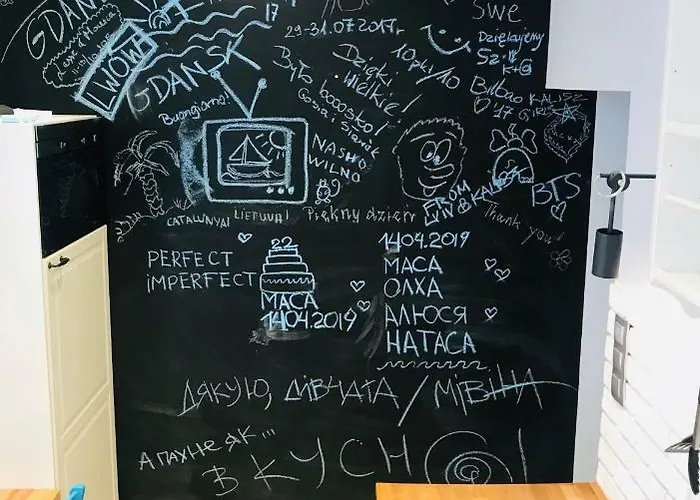 GDAŃSK
WOW
GDANSK
17
29-31.07.2017r
SWE
Dziękujemy
Sz.
K+G
Było booosko!
Gosia i Sławek
Dzięki
wielkie!
10pkt/10
Bilbao
'17 GIRLS
KALISZ
Buongiorno!
NASHO
WILNO
FROM
LVIV
BTS
Thank you!
CATALUNYA!
LIETUVA!
Piękny dzień
PERFECT
iMPERFECT
22
МАСА
14.04.2019
14.04.2019
МАСА
ОЛХА
АЛЮСЯ
НАТАСА
ДЯКУЮ, ДІВЧАТА /
А ПАХНЕ ЯК...
ВКУСНО!